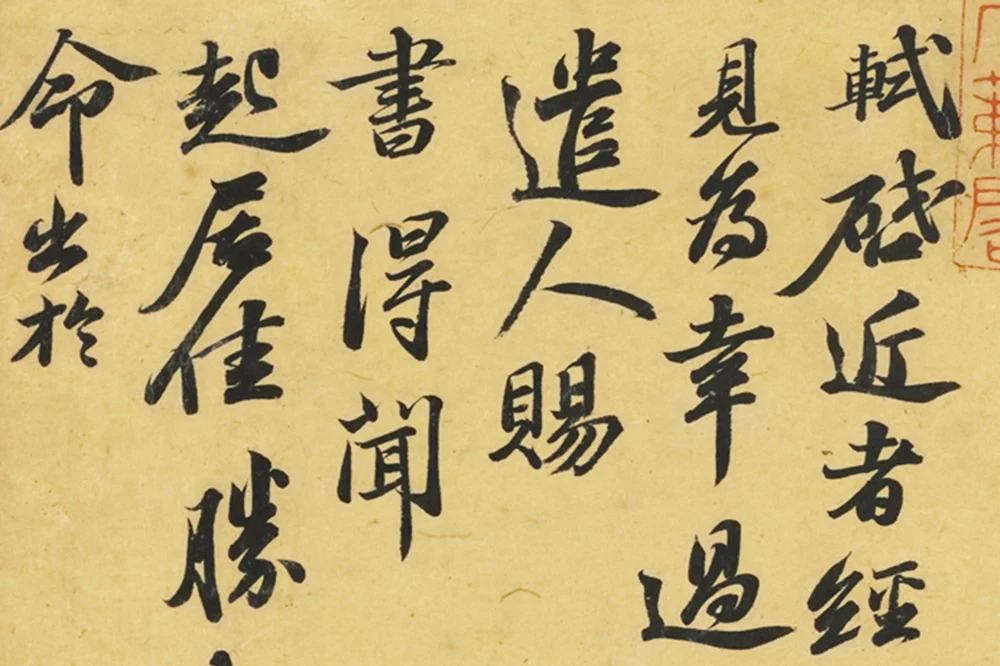 軾啓近者經
見為幸過
遣人賜
書得聞
起居佳勝
命出於